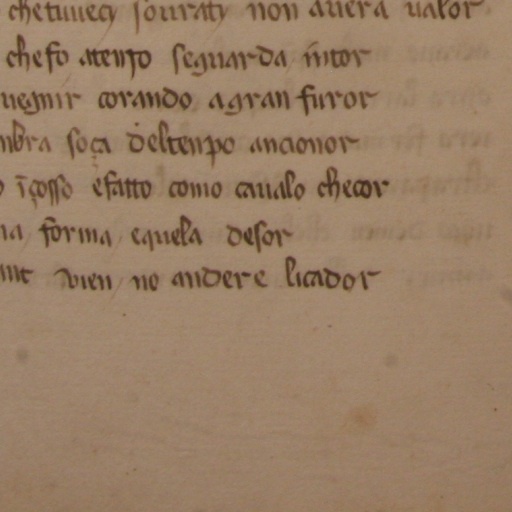 chetuuecy souraty non auera ualor
chefo atenpo seguarda intor
uegnir corando agran furor
nbra soça deltenpo ancionor
içosso efatto como caualo checor
na forma equela desor
int uien no andere licador